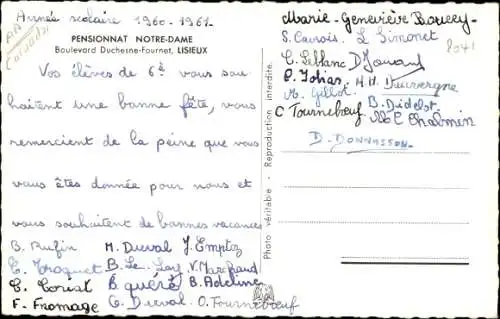 Année scolaire 1960-1961.
PENSIONNAT NOTRE-DAME
Boulevard Duchesne-Fournet, LISIEUX
Vos élèves de 6è vous sou-
haitent une bonne fête, vous
remercient de la peine que vous
vous êtes donnée pour nous et
vous souhaitent de bonnes vacances
B. Rufin M. Duval J.
C. Troquet B. Le V. Marchand
C. B. Quéré B. Adeline
F. Fromage C. Duval O. Tournebœuf
Photo véritable - Reproduction interdite.
Marie-Geneviève
S. L. Simonet
8041
C. Leblanc D.
M.H. Dauvergne
M. Gillot B. Didelot
C Tournebœuf Chalmin
D. DONNASSON.